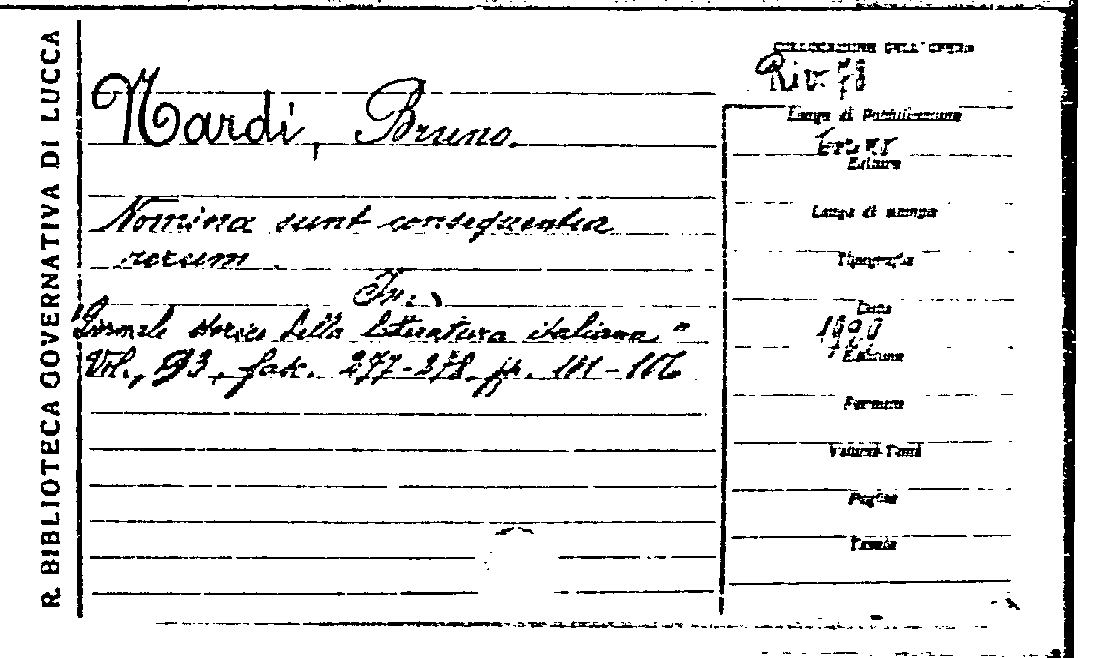 R. BIBLIOTECA GOVERNATIVA DI LUCCA
Nardi, Bruno.
Nomina sunt consequentia
rerum.
In:
Giornale storico della letteratura italiana"
Vol., 93, fasc. 277-278, pp. 101-106
COLLOCAZIONE DELL'OPERA
Riv. 78
Luogo di Pubblicazione
Editore
Luogo di stampa
Tipografia
Data
Edizione
Formato
Volumi-Tomi
Pagine
Tavole